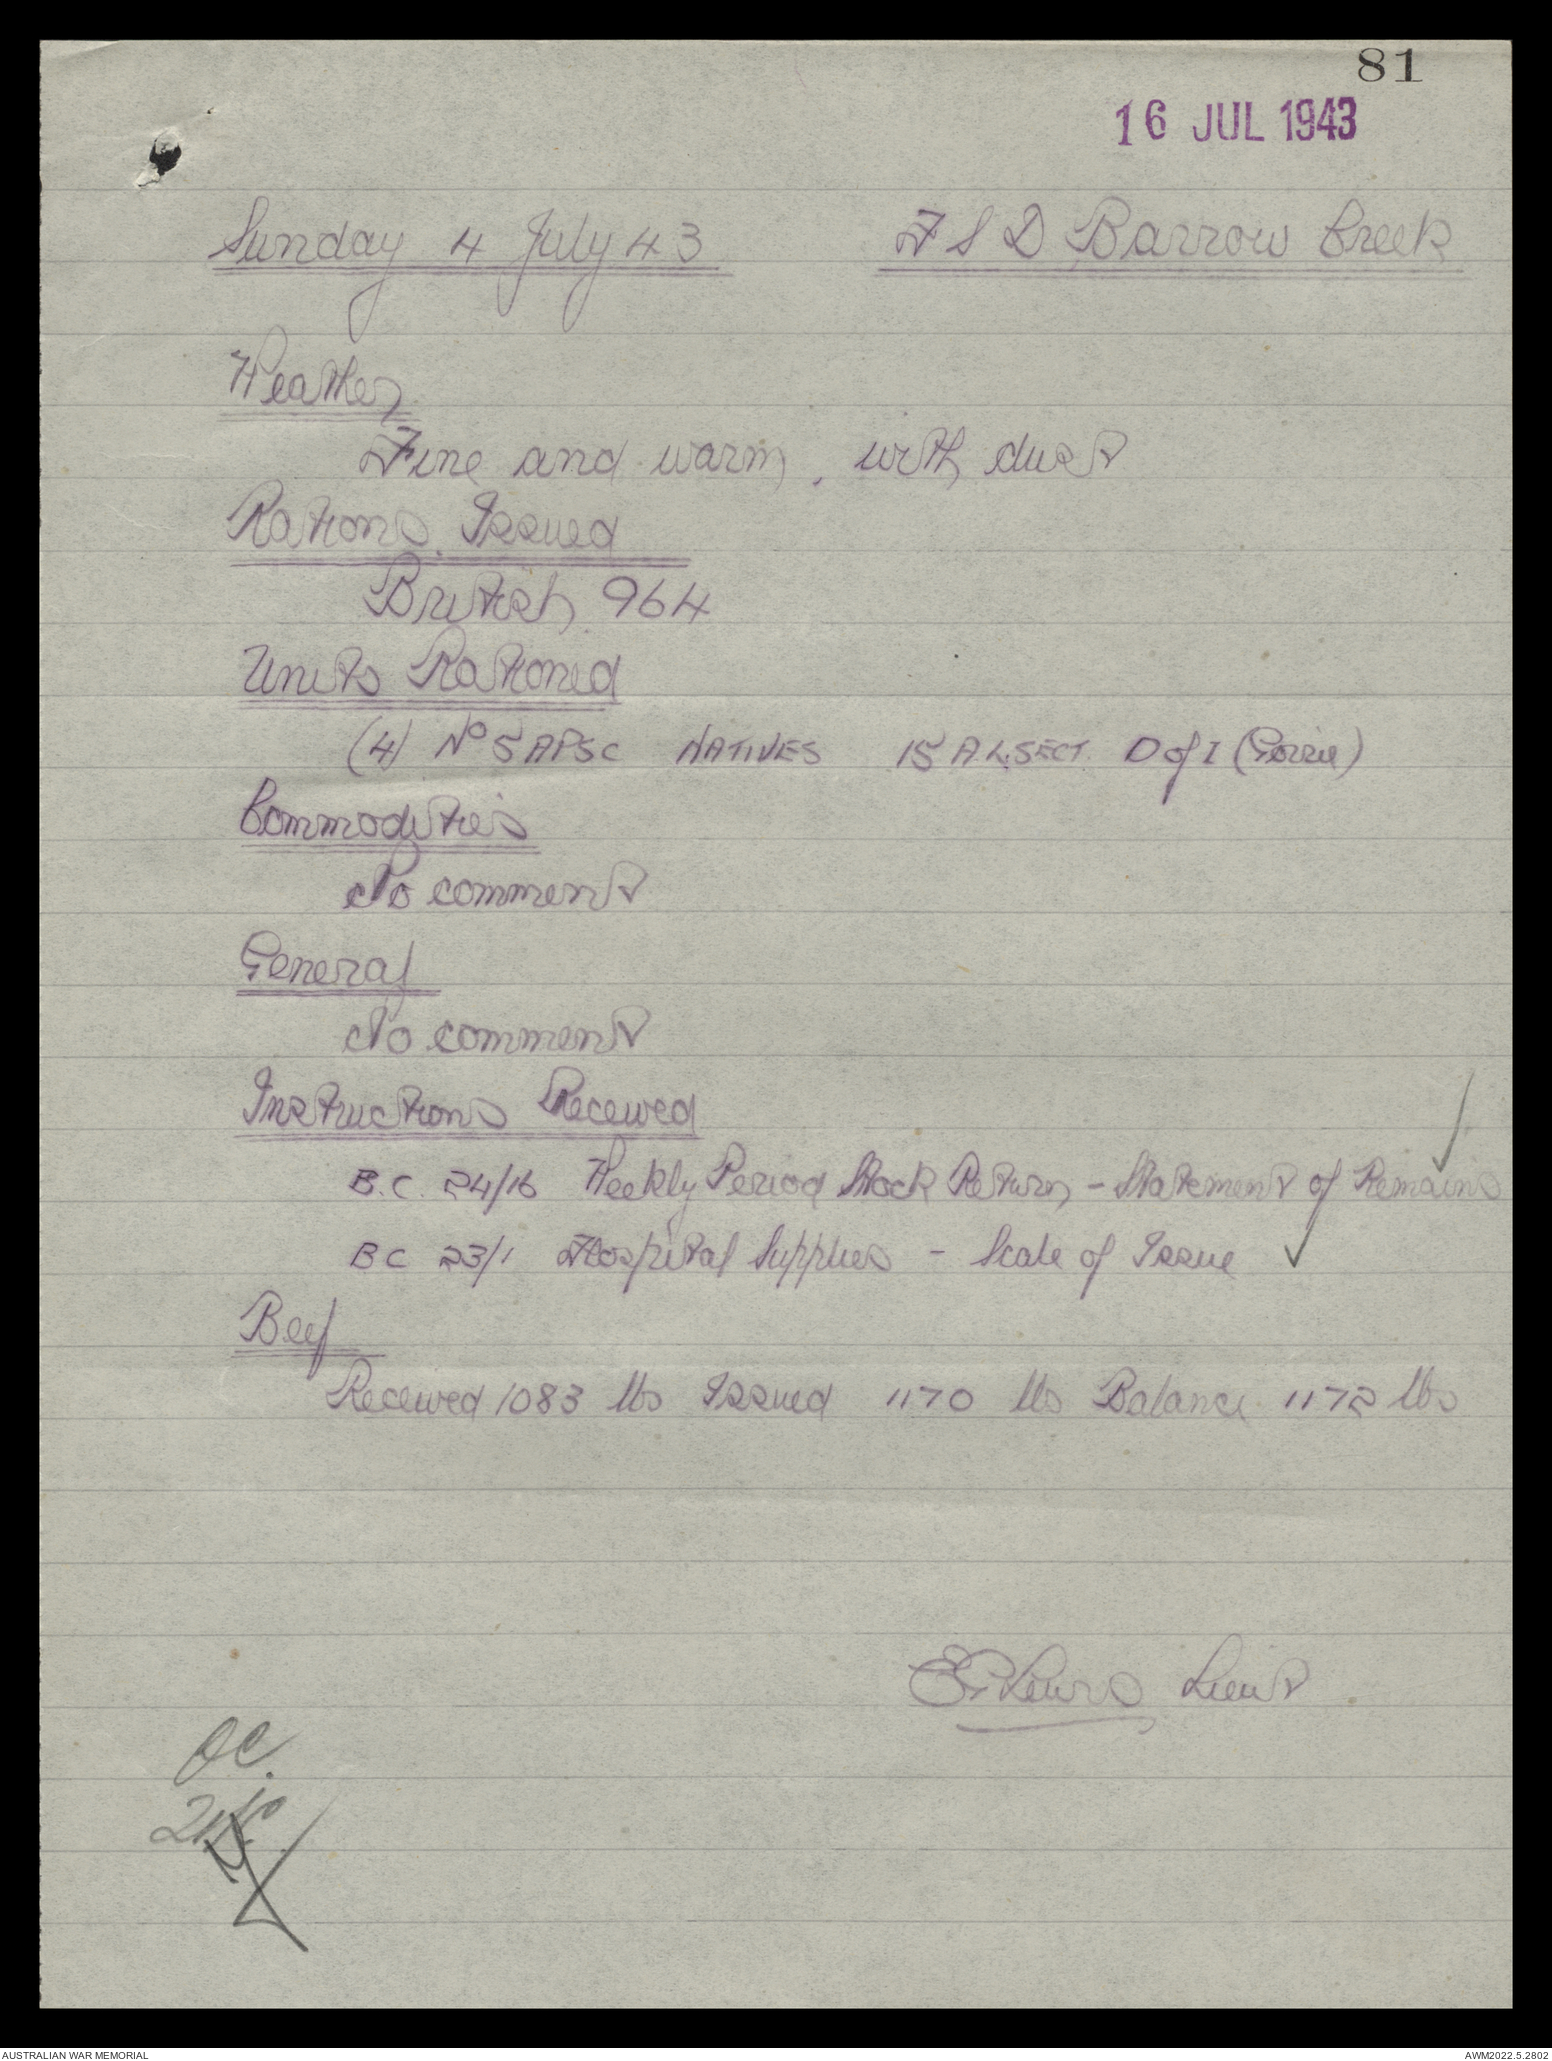 81
16 JUL 1943
Sunday 4 July 43 F S D Barrow Creek
Weather
Fine and warm, with dust
Rations Issued
British 964
Units Rationed
(4) No 5 APSC NATIVES 15 A.L. SECT. D of I (Gorrie)
Commodities
No comment
General
No comment
Instructions Received
B.C. 24/16 Weekly Period Stock Return - Statement of Remains
B C 23/1 Hospital Supplies - Scale of Issue
Beef
Received 1083 lbs Issued 1170 lbs Balance 1172 lbs
Lewis Lieut
OC.
AUSTRALIAN WAR MEMORIAL AWM2022.5.2802